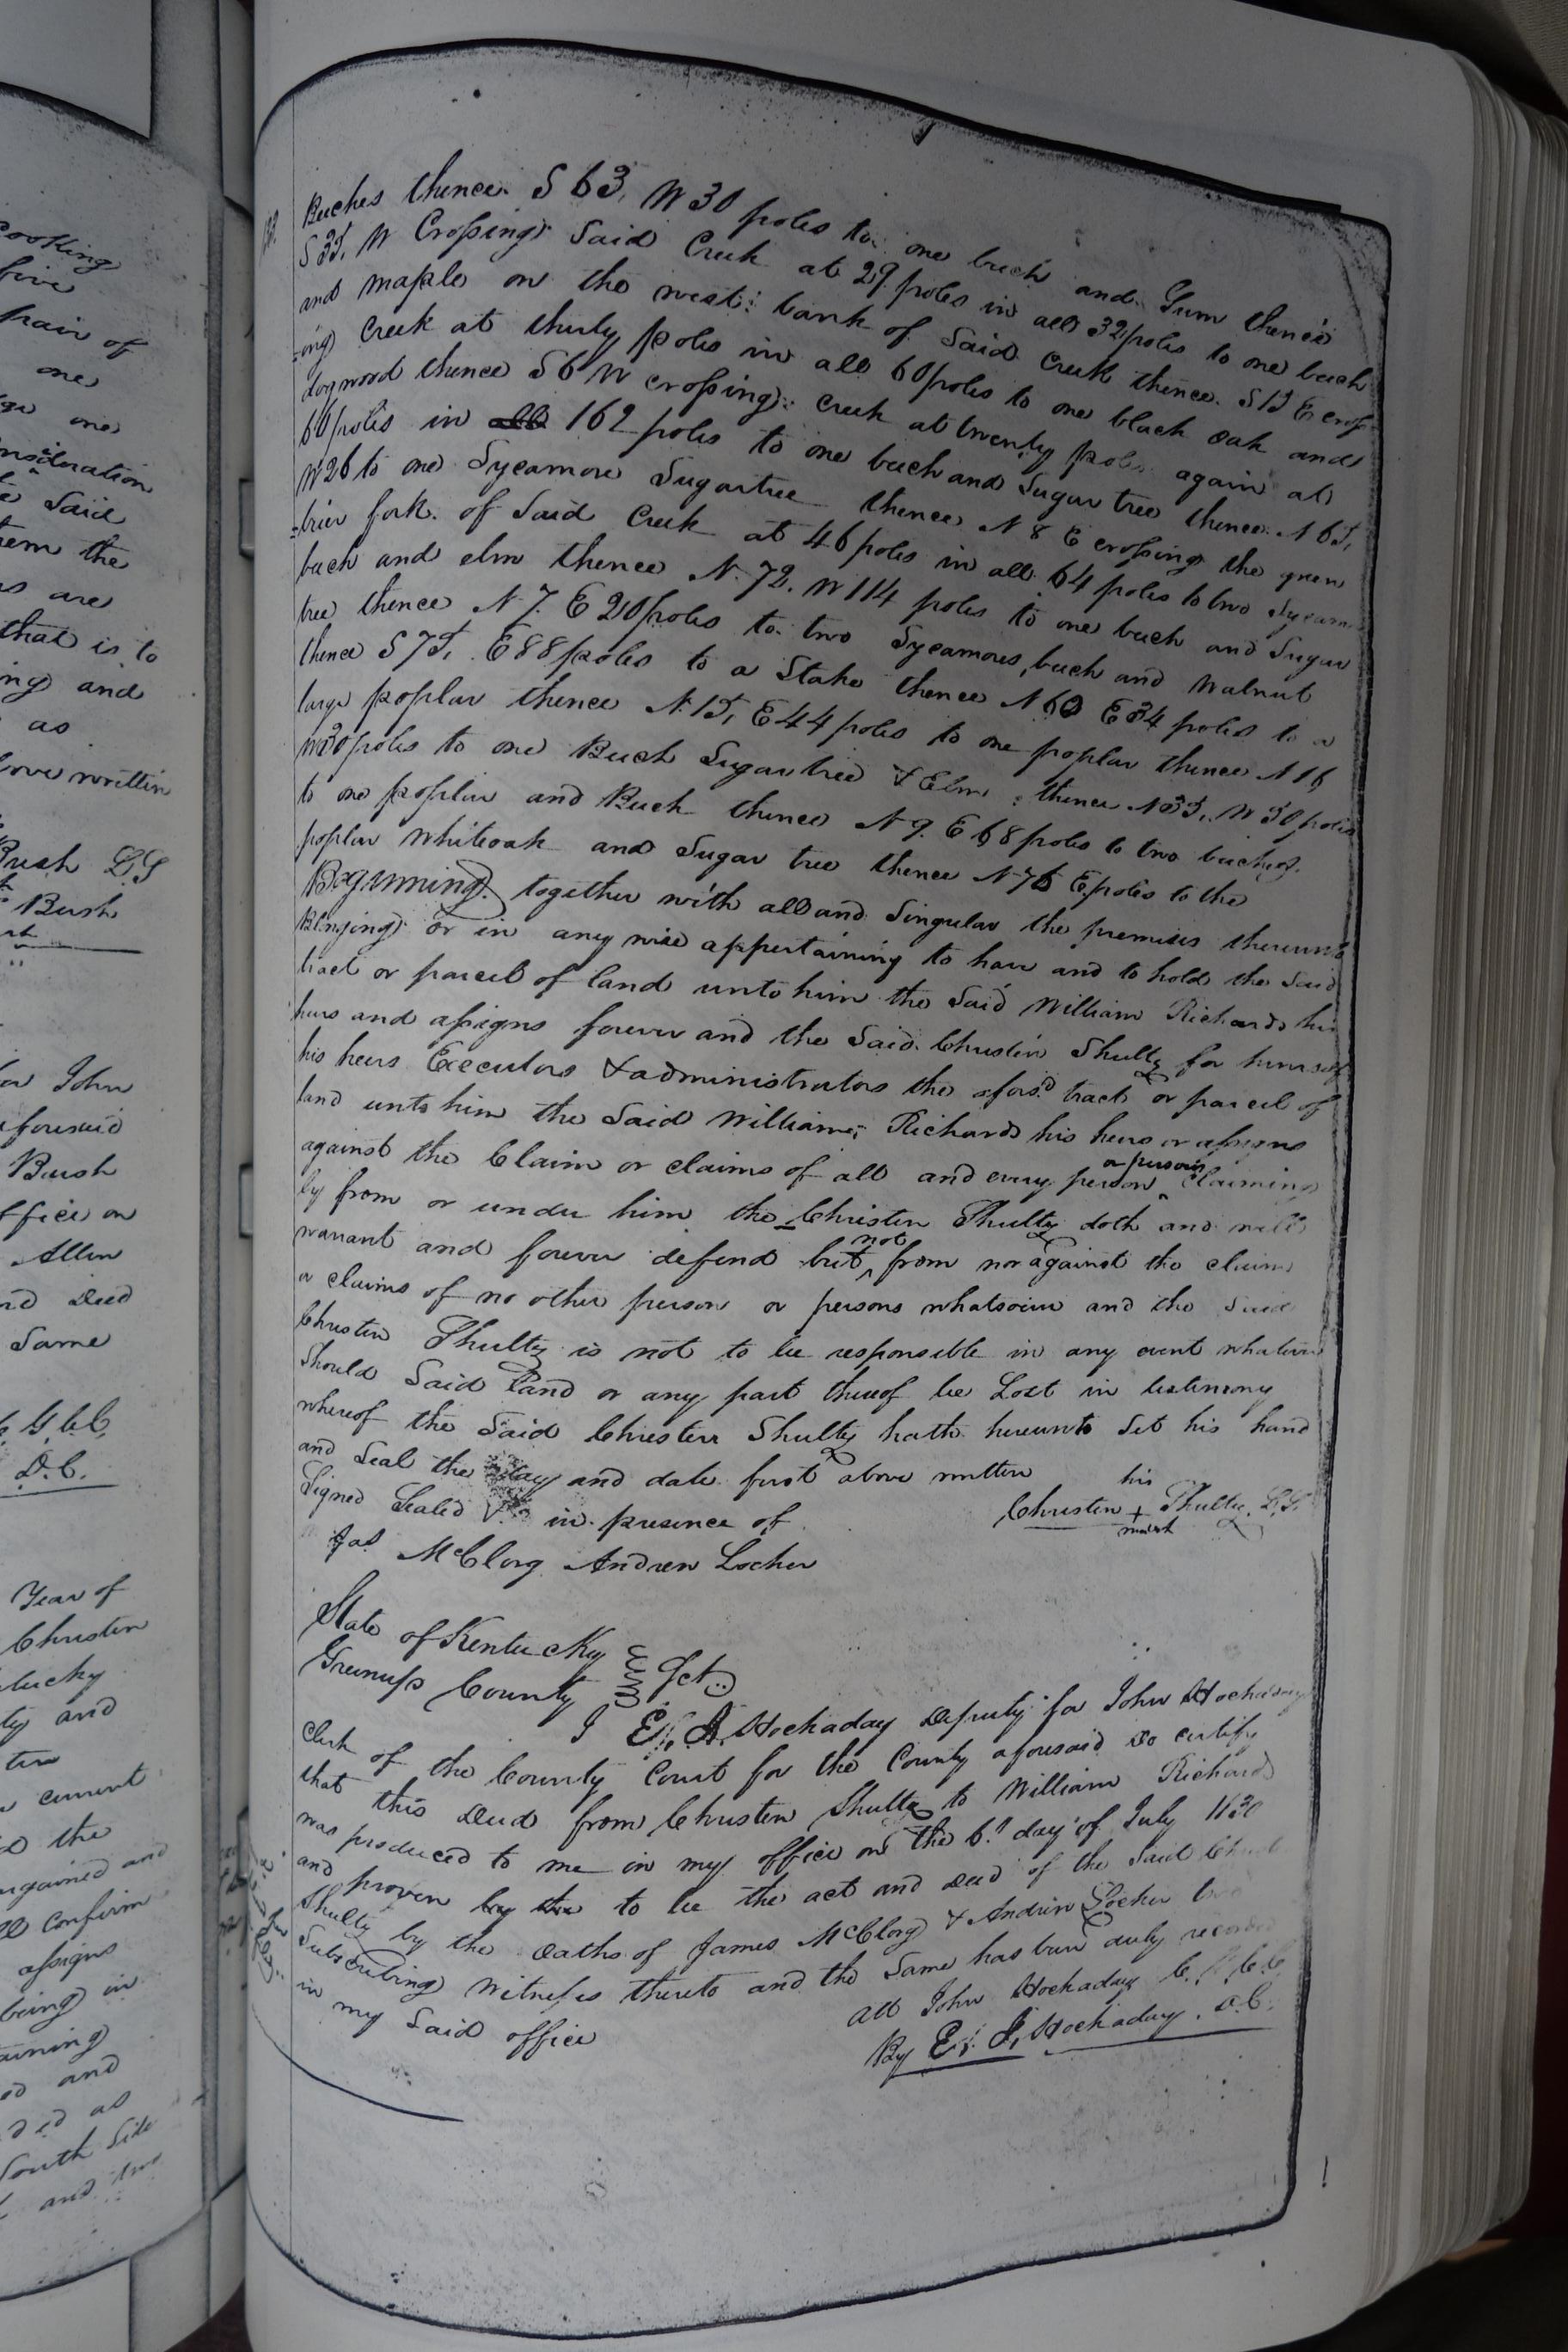 cooking
five
hair of
one
one
consideration
Said
them the
are
that is to
ing and
as
above written
Bush L.S
Bush
for John
aforesaid
Bush
office on
Allen
and Deed
Same
D.C.
Year of
Christen
tucky
ty and
current
the
argained and
confirm
assigns
being in
and
as
South Side
and two
Beches thence S 63, W 30 poles to one beech and Gum thence
S 35, W Crossing Said Creek at 29 poles in all 32 poles to one beech
and maple on the west bank of Said Creek thence S 15 E cross
-ing Creek at thirty poles in all 60 poles to one black oak and
dogwood thence S 6 W crossing creek at twenty poles again at
60 poles in all 162 poles to one beech and Sugar tree thence N 65,
W 26 to one Sycamore Sugartree thence N 8 E crossing the green
-brier fork of Said Creek at 46 poles in all 64 poles to two Sycam
beech and elm thence N. 72. W 114 poles to one beech and Sugar
tree thence N 7. E 20 poles to two Sycamores, beech and Walnut
thence S 75, E 88 poles to a Stake thence N 60 E 34 poles to a
large poplar thence N. 15, E 44 poles to one poplar thence N 16
W 30 poles to one Beech Sugar tree & Elm thence N 33, W 30 poles
to one poplar and Beech thence N 9. E 68 poles to two beeches
poplar Whiteoak and Sugar tree thence N 76 E poles to the
Beginning together with all and Singular the premises thereunto
Blnging or in any wise appertaining to have and to hold the Said
tract or parcel of land unto him the Said William Richards his
heirs and assigns forever and the Said Christen Shultz for himself
his heirs Executors & administrators the afors.d tract or parcel of
land unto him the Said William Richards his heirs or assigns
against the Claim or claims of all and every person or persons claiming
by from or under him the Christen Shultz doth and will
warrant and forever defend but not from nor against the claim
or claims of no other person or persons whatsoever and the Said
Christen Shultz is not to be responsible in any event whatever
Should Said land or any part thereof be Lost in testimony
whereof the Said Christen Shultz hath hereunto Set his hand
and Seal the day and date first above written
Signed Sealed &c in presence of
his
Christen + Shultz L.S.
mark
Jas McClorg Andrew Locher
State of Kentucky
Greenup County Sct
I E. J. Hockaday Deputy for John Hockaday
Clerk of the County Court for the County aforesaid Do certify
that this Deed from Christen Shultz to William Richards
was produced to me in my office on the 6th day of July 1830
and proven by the to be the act and Deed of the Said
Shultz by the Oaths of James McClorg & Andrew Locher
Subscribing Witnesses thereto and the Same has been duly recorded
in my Said office
Att John Hockaday C.G.C.C.
By E. J. Hockaday. D.C.